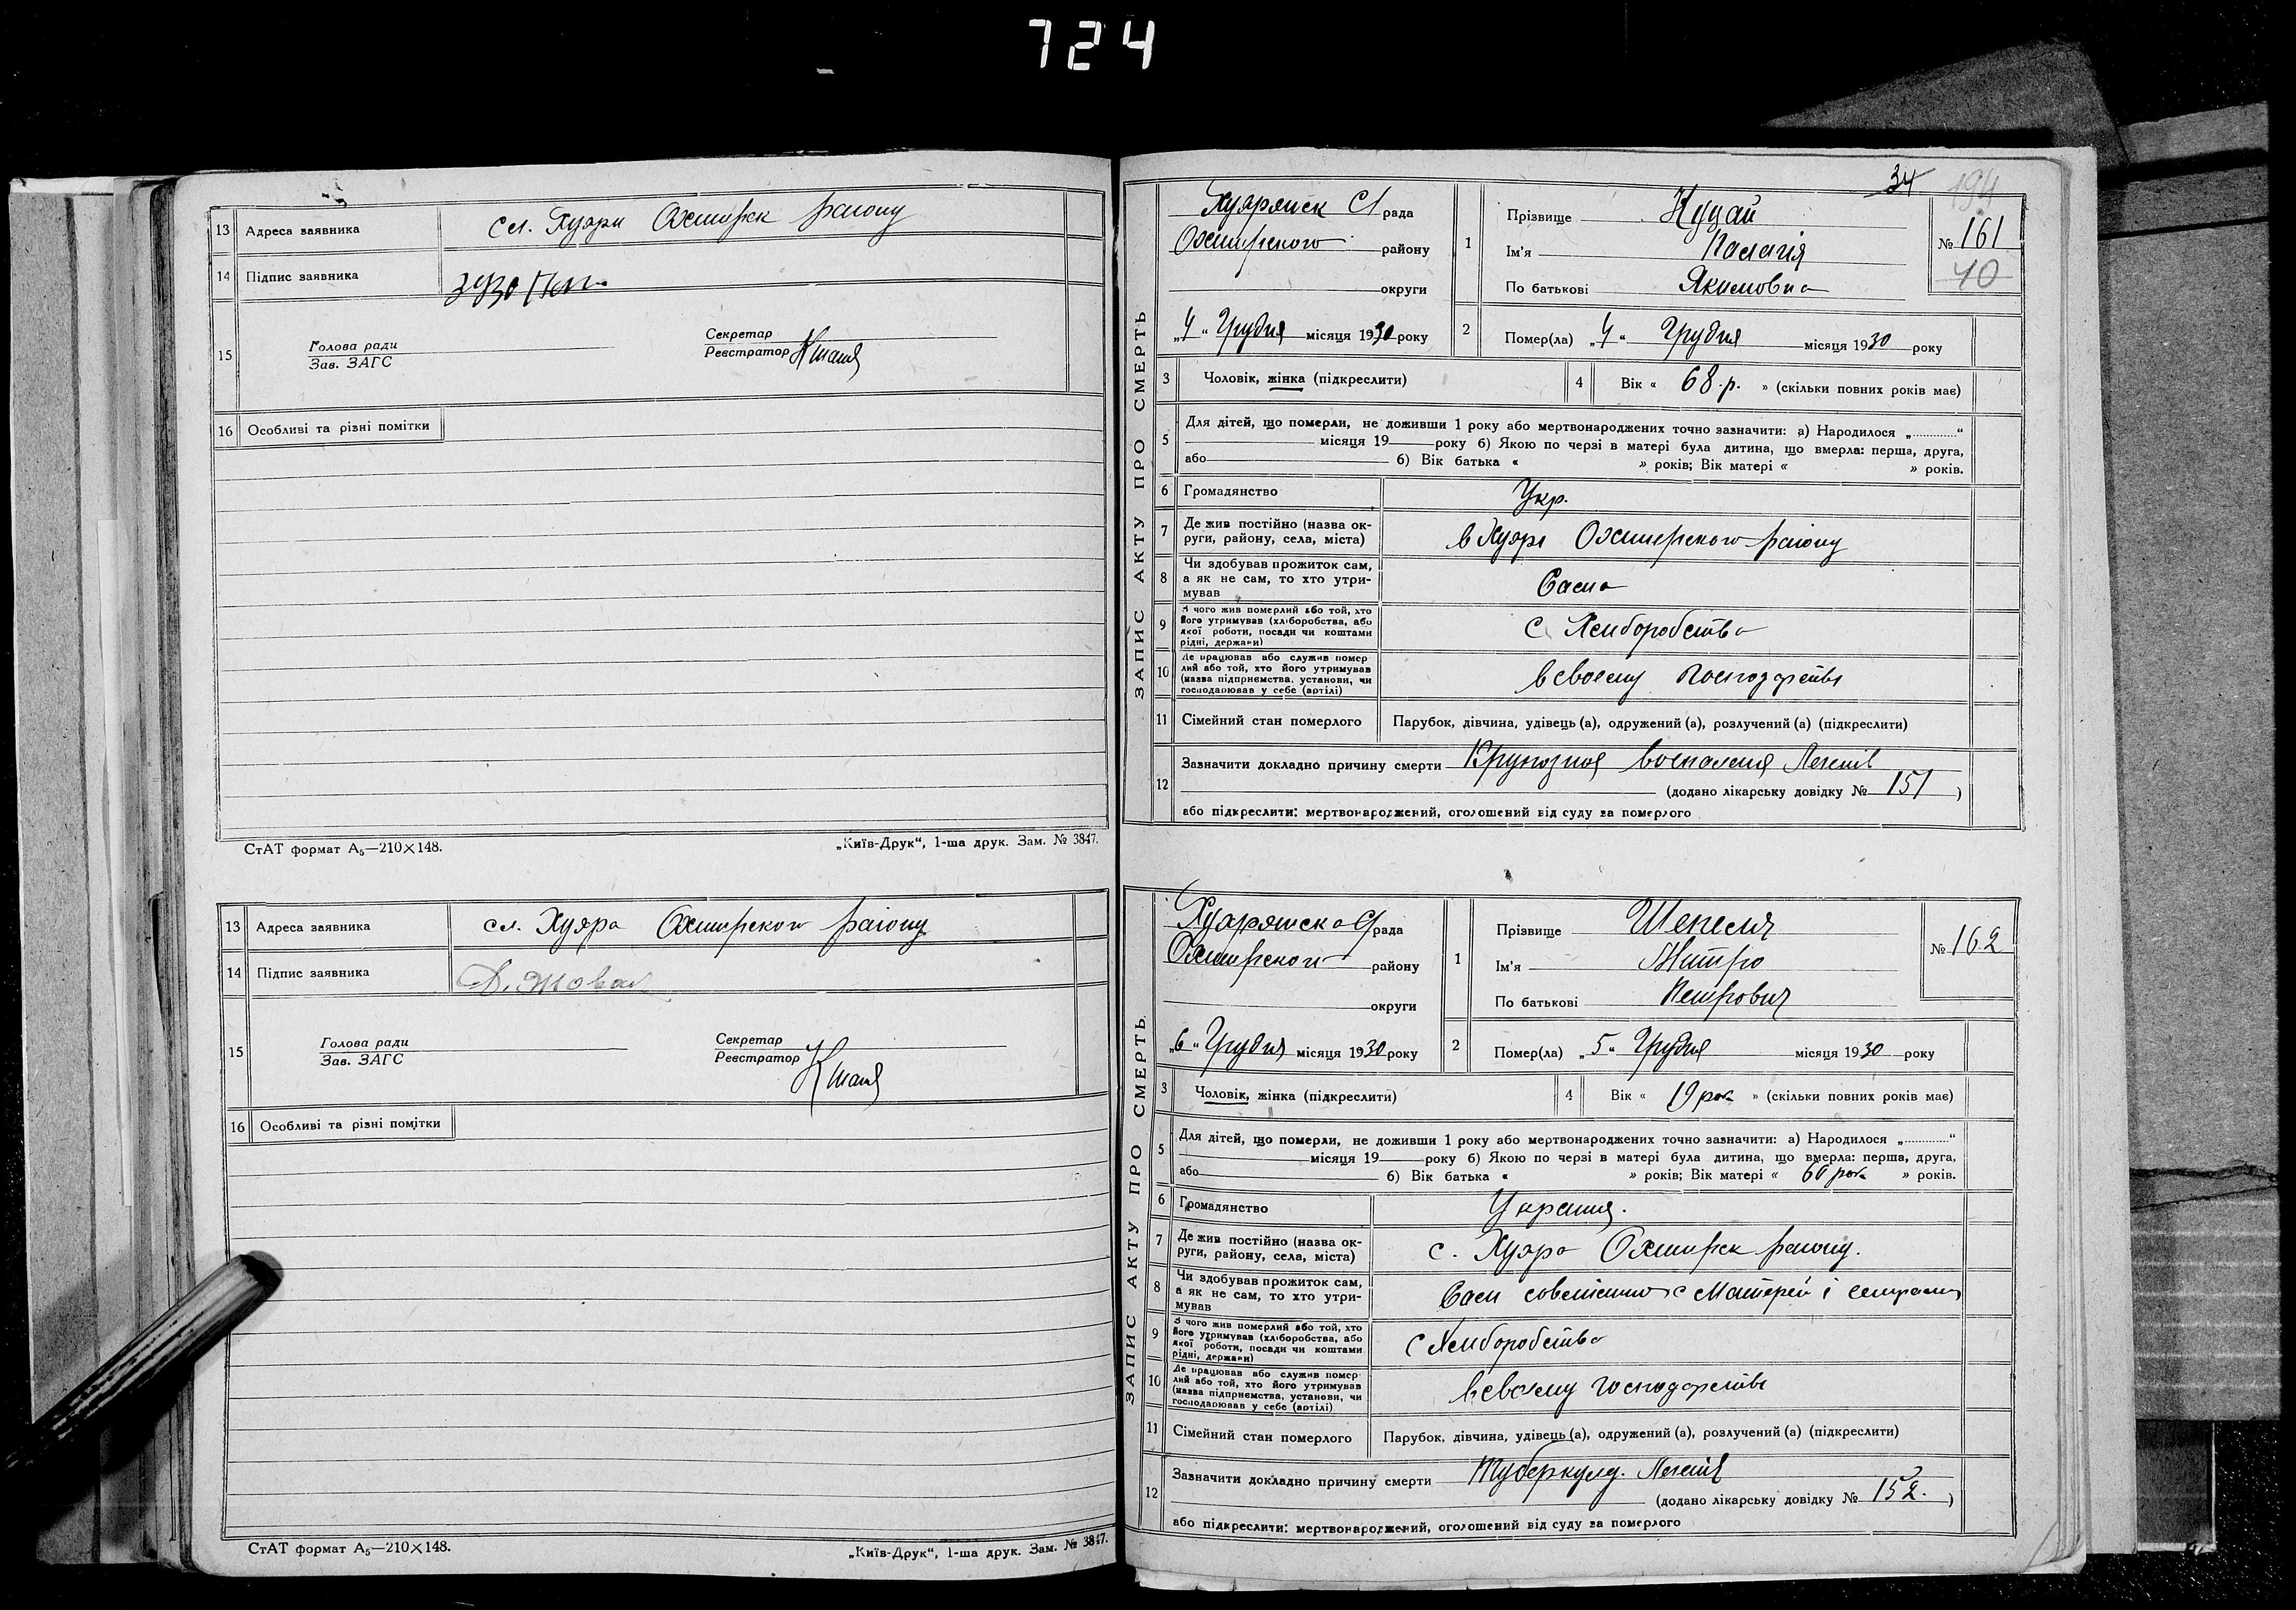 724
13 Адреса заявника сл. Хухри Охтирск району
14 Підпис заявника
15 Голова ради
Зав. ЗАГС
Секретар
Реєстратор
16 Особливі та різні помітки
СтАТ формат А5—210×148. „Київ-Друк“, 1-ша друк. Зам. № 3847.
13 Адреса заявника сл. Хухра Охтирского району
14 Підпис заявника
15 Голова ради
Зав. ЗАГС
Секретар
Реєстратор
16 Особливі та різні помітки
СтАТ формат А5—210×148. „Київ-Друк“, 1-ша друк. Зам. № 3847.
34 194
ЗАПИС АКТУ ПРО СМЕРТЬ
рада
Охтирского району
округи
„4“ Грудня місяця 1930 року
1 Прізвище Куцай
Ім'я Палагія
По батькові Якимовна
№ 161
40
2 Помер(ла) „4“ Грудня місяця 1930 року
3 Чоловік, жінка (підкреслити)
4 Вік « 68 р. » (скільки повних років має)
5 Для дітей, що померли, не доживши 1 року або мертвонароджених точно зазначити: а) Народилося „............“
місяця 19 року б) Якою по черзі в матері була дитина, що вмерла: перша, друга,
або б) Вік батька « » років; Вік матері « » років.
6 Громадянство Укр.
7 Де жив постійно (назва округи, району, села, міста) в Хухрі Охтирского району
8 Чи здобував прожиток сам,
а як не сам, то хто утри-
мував Сама
9 З чого жив померлий або той, хто
його утримував (хліборобства, або
якої роботи, посади чи коштами
рідні, держави) с Хлиборобства
10 Де працював або служив помер
лий або той, хто його утримував
(назва підприємства, установи, чи
господарював у себе (артілі) в своему господарстві
11 Сімейний стан померлого Парубок, дівчина, удівець (а), одружений (а), розлучений (а) (підкреслити)
12 Зазначити докладно причину смерти Крупозноя воспаления Легенів
(додано лікарську довідку № 151 )
або підкреслити: мертвонароджений, оголошений від суду за померлого
ЗАПИС АКТУ ПРО СМЕРТЬ
рада
Охтирского району
округи
„6“ Грудня місяця 1930 року
1 Прізвище Шепеля
Ім'я Митро
По батькові Петрович
№ 162
2 Помер(ла) „5“ Грудня місяця 1930 року
3 Чоловік, жінка (підкреслити)
4 Вік « 19 рок » (скільки повних років має)
5 Для дітей, що померли, не доживши 1 року або мертвонароджених точно зазначити: а) Народилося „............“
місяця 19 року б) Якою по черзі в матері була дитина, що вмерла: перша, друга,
або б) Вік батька « » років; Вік матері « 60 рок » років.
6 Громадянство
7 Де жив постійно (назва округи, району, села, міста) с. Хухра Охтирск району.
8 Чи здобував прожиток сам,
а як не сам, то хто утри-
мував Сам совместно с Матерей і сестрами
9 З чого жив померлий або той, хто
його утримував (хліборобства, або
якої роботи, посади чи коштами
рідні, держави) с Хлиборобства
10 Де працював або служив помер
лий або той, хто його утримував
(назва підприємства, установи, чи
господарював у себе (артілі) в своему господарстві
11 Сімейний стан померлого Парубок, дівчина, удівець (а), одружений (а), розлучений (а) (підкреслити)
12 Зазначити докладно причину смерти Туберкулз. Легенів
(додано лікарську довідку № 152. )
або підкреслити: мертвонароджений, оголошений від суду за померлого